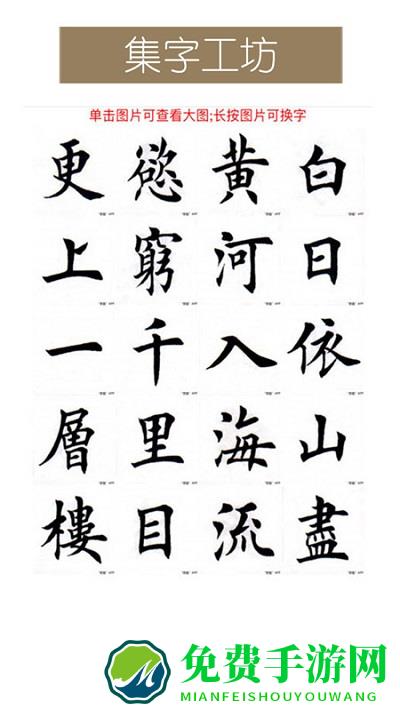 集字工坊
单击图片可查看大图;长按图片可换字
白日依山盡
黄河入海流
慾窮千里目
更上一層樓
免费手游网
MIANFEISHOUYOUWANG